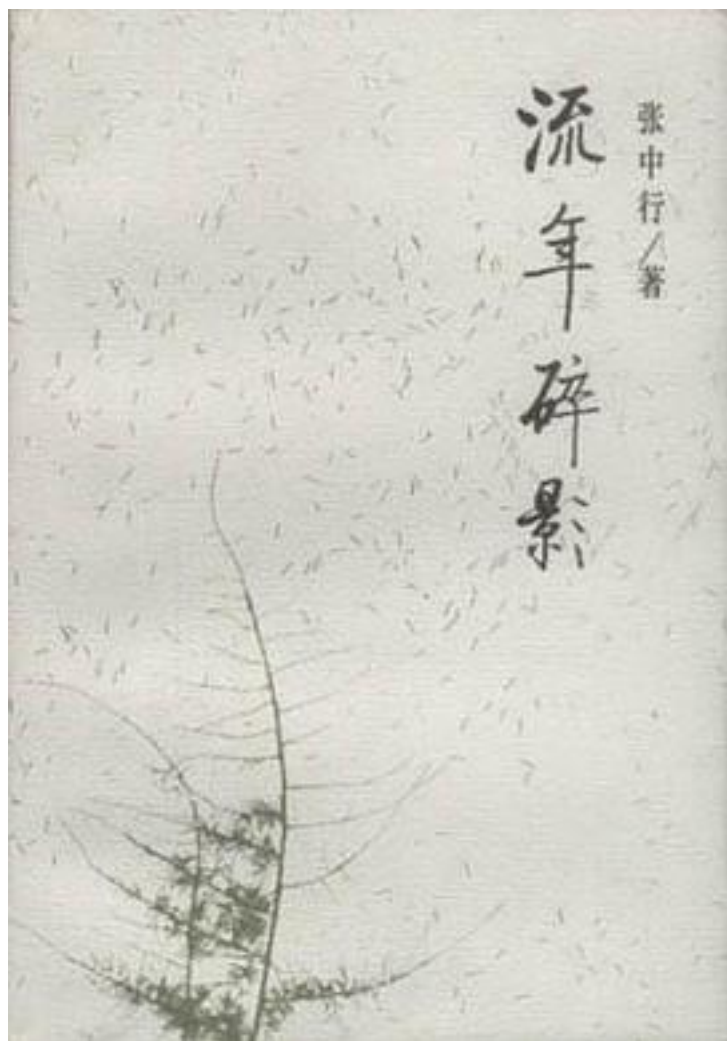 张中行/著
流年碎影